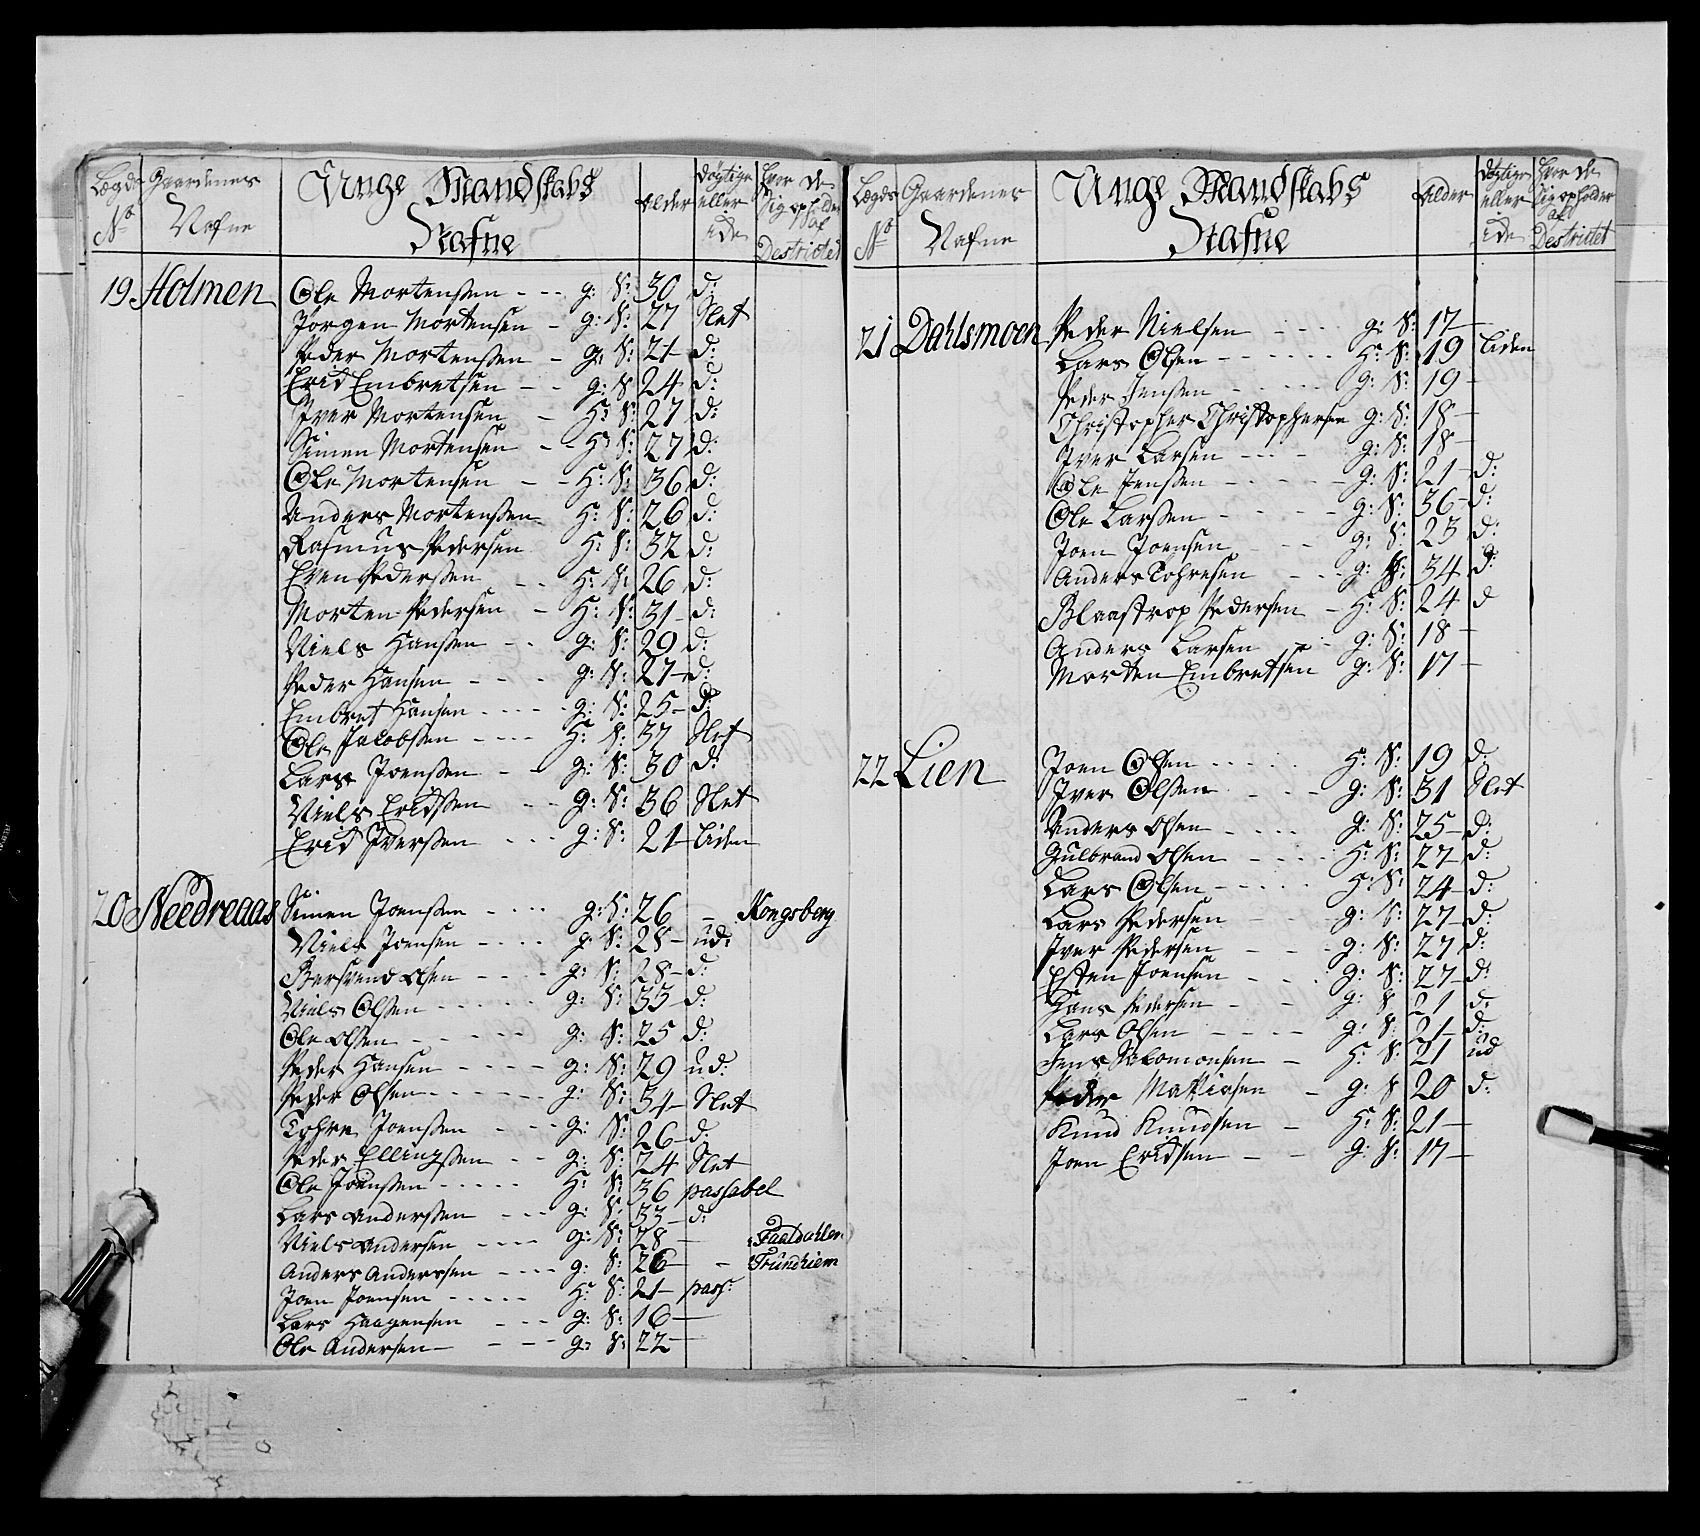 Lægds No
Gaardenes Nafne
Unge Mandskabs Nafne
Alder
døgtige eller ide
hvor de sig opholder af Destrictet
19 Holmen Ole Mortenssen - - - g: S: 30 d:
Jørgen Mortensen - g: S: 27 Slet
Peder Mortenssen - g: S: 21 - d:
Erid Embretsen - - g: S 24 d:
Iver Mortensen - H: S: 27 d:
Simen Mortensen - - H: S: 27 d:
Ole Mortensen - - H: S: 36 d:
Anders Mortenssen H: S: 26 d:
Rasmus Pedersen H: S: 32 d:
Even Pederssen - - H: S: 26 d:
Morten Pedersen - H: S: 31 - d:
Niels Hanssen - - g: S: 29 d:
Peder Hansen - - - - g: S: 27 - d:
Embret Hansen - - - - - g: S: 25 - d:
Ole Jacobssen - - - - H: S: 37 Slet
Lars Joenssen - - g: S: 30 d:
Niels Eridssen - - - g: S: 36 Slet
Erid Iverssen - - - g: S: 21 - liden
20 Needreaas Simen Joenssen - - - - g: S: 26 - Kongsberg
Niels Joensen - - - - g S: 28 - ud:
Bersvend Olsen - - - - g: S: 28 - d:
Niels Olssen - - - - - g: S: 33 d:
Ole Olssen - - - - - g: S: 25 d:
Peder Hansen - - - - g: S: 29 ud:
Peder Olsen - - - - - - g: S: 34 - Slet
Tohre Joenssen - - - g: S: 26 - d:
Peder Ellingssen - - g: S: 24 Slet
Ole Joenssen - - - - - H: S: 36 passabel
Lars Anderssen - - - g: S: 33 - d:
Niels Andersen - - - - g: S: 28 -
Anders Anderssen - - - - g: S: 26 - - Trundhiem
Joen Joensen - - - - - H: S: 21 - pass:
Lars Haagensen - - - g: S: 16 -
Ole Andersen - - - - g: S: 22 -
Lægds No
Gaardenes Nafne
Unge Mandskabs Nafne
Alder
døgtige eller ide
hvor de sig opholder af Destrictet
21 Dahlsmoen Peder Nielsen - - - g: S: 17 -
Lars Olsen - - - - - - H: S: 19 liden
Peder Jenssen - - - - - g: S: 19 -
Christopher Christophersen g: S: 18 -
Iver Larsen - - - - g: S: 18 -
Ole Jenssen - - - - - g: S: 21 - d:
Ole Larssen - - - - - g: S: 36 - d:
Joen Joensen - - - g: S: 23 d:
Anders Tohresen - - - g: S: 34 d:
Blaastrop Pedersen - H: S: 24 d
Anders Larsen - - g: S: 18 -
Morten Embretsen g: S: 17 -
22 Lien Joen Olsen - - - - - H: S: 19 d:
Iver Olssen - - - g: S: 31 Slet
Anders Olsen - - - - g: S: 25 - d:
Gulbrand Olsen - - - - H: S: 27 - d:
Lars Olsen - - - - - H: S: 24 - d:
Lars Pedersen - - - - g: S: 27 - d:
Iver Pedersen - - - g: S: 27 d:
Esten Joensen - - - g: S: 27 - d:
Hans Pedersen - - g: S 21 d:
Lars Olsen - - - - g: S: 21 - d:
Jens Salomonsen - H: S: 21 ud
Peder Mattiasen - g: S 20 d:
Knud Knudsen - H: S: 21 -
Joen Eridsen - - g: S: 17 -